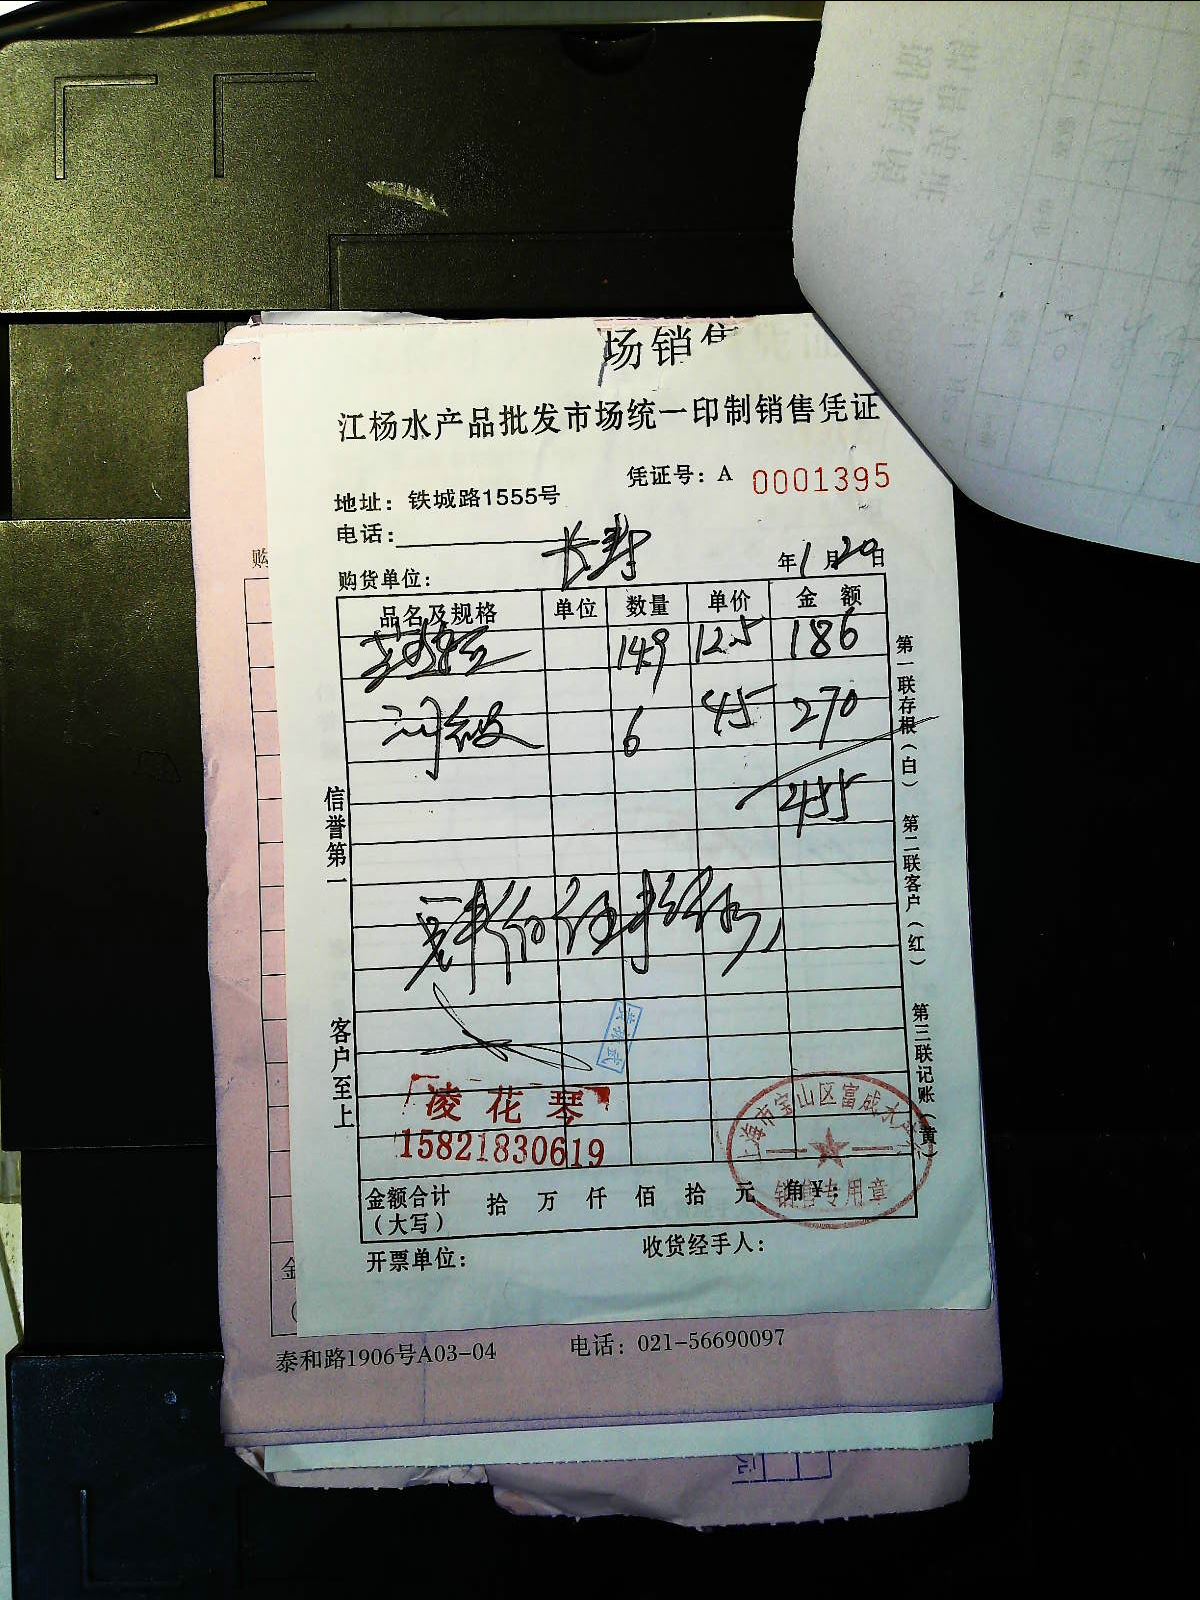 场销售
江杨水产品批发市场统一印制销售凭证
凭证号：A 0001395
地址：铁城路1555号
电话：
购货单位： 长寿 年1月20日
品名及规格 单位 数量 单价 金额
149 12.5 186
6 45 270
455
肆佰伍拾伍
信誉第一
客户至上
第一联存根（白） 第二联客户（红） 第三联记账（黄）
凌花琴
15821830619
上海市宝山区富成水
销售专用章
金额合计（大写） 拾 万 仟 佰 拾 元 角 ¥：
开票单位： 收货经手人：
购
金
泰和路1906号A03-04 电话：021-56690097
元